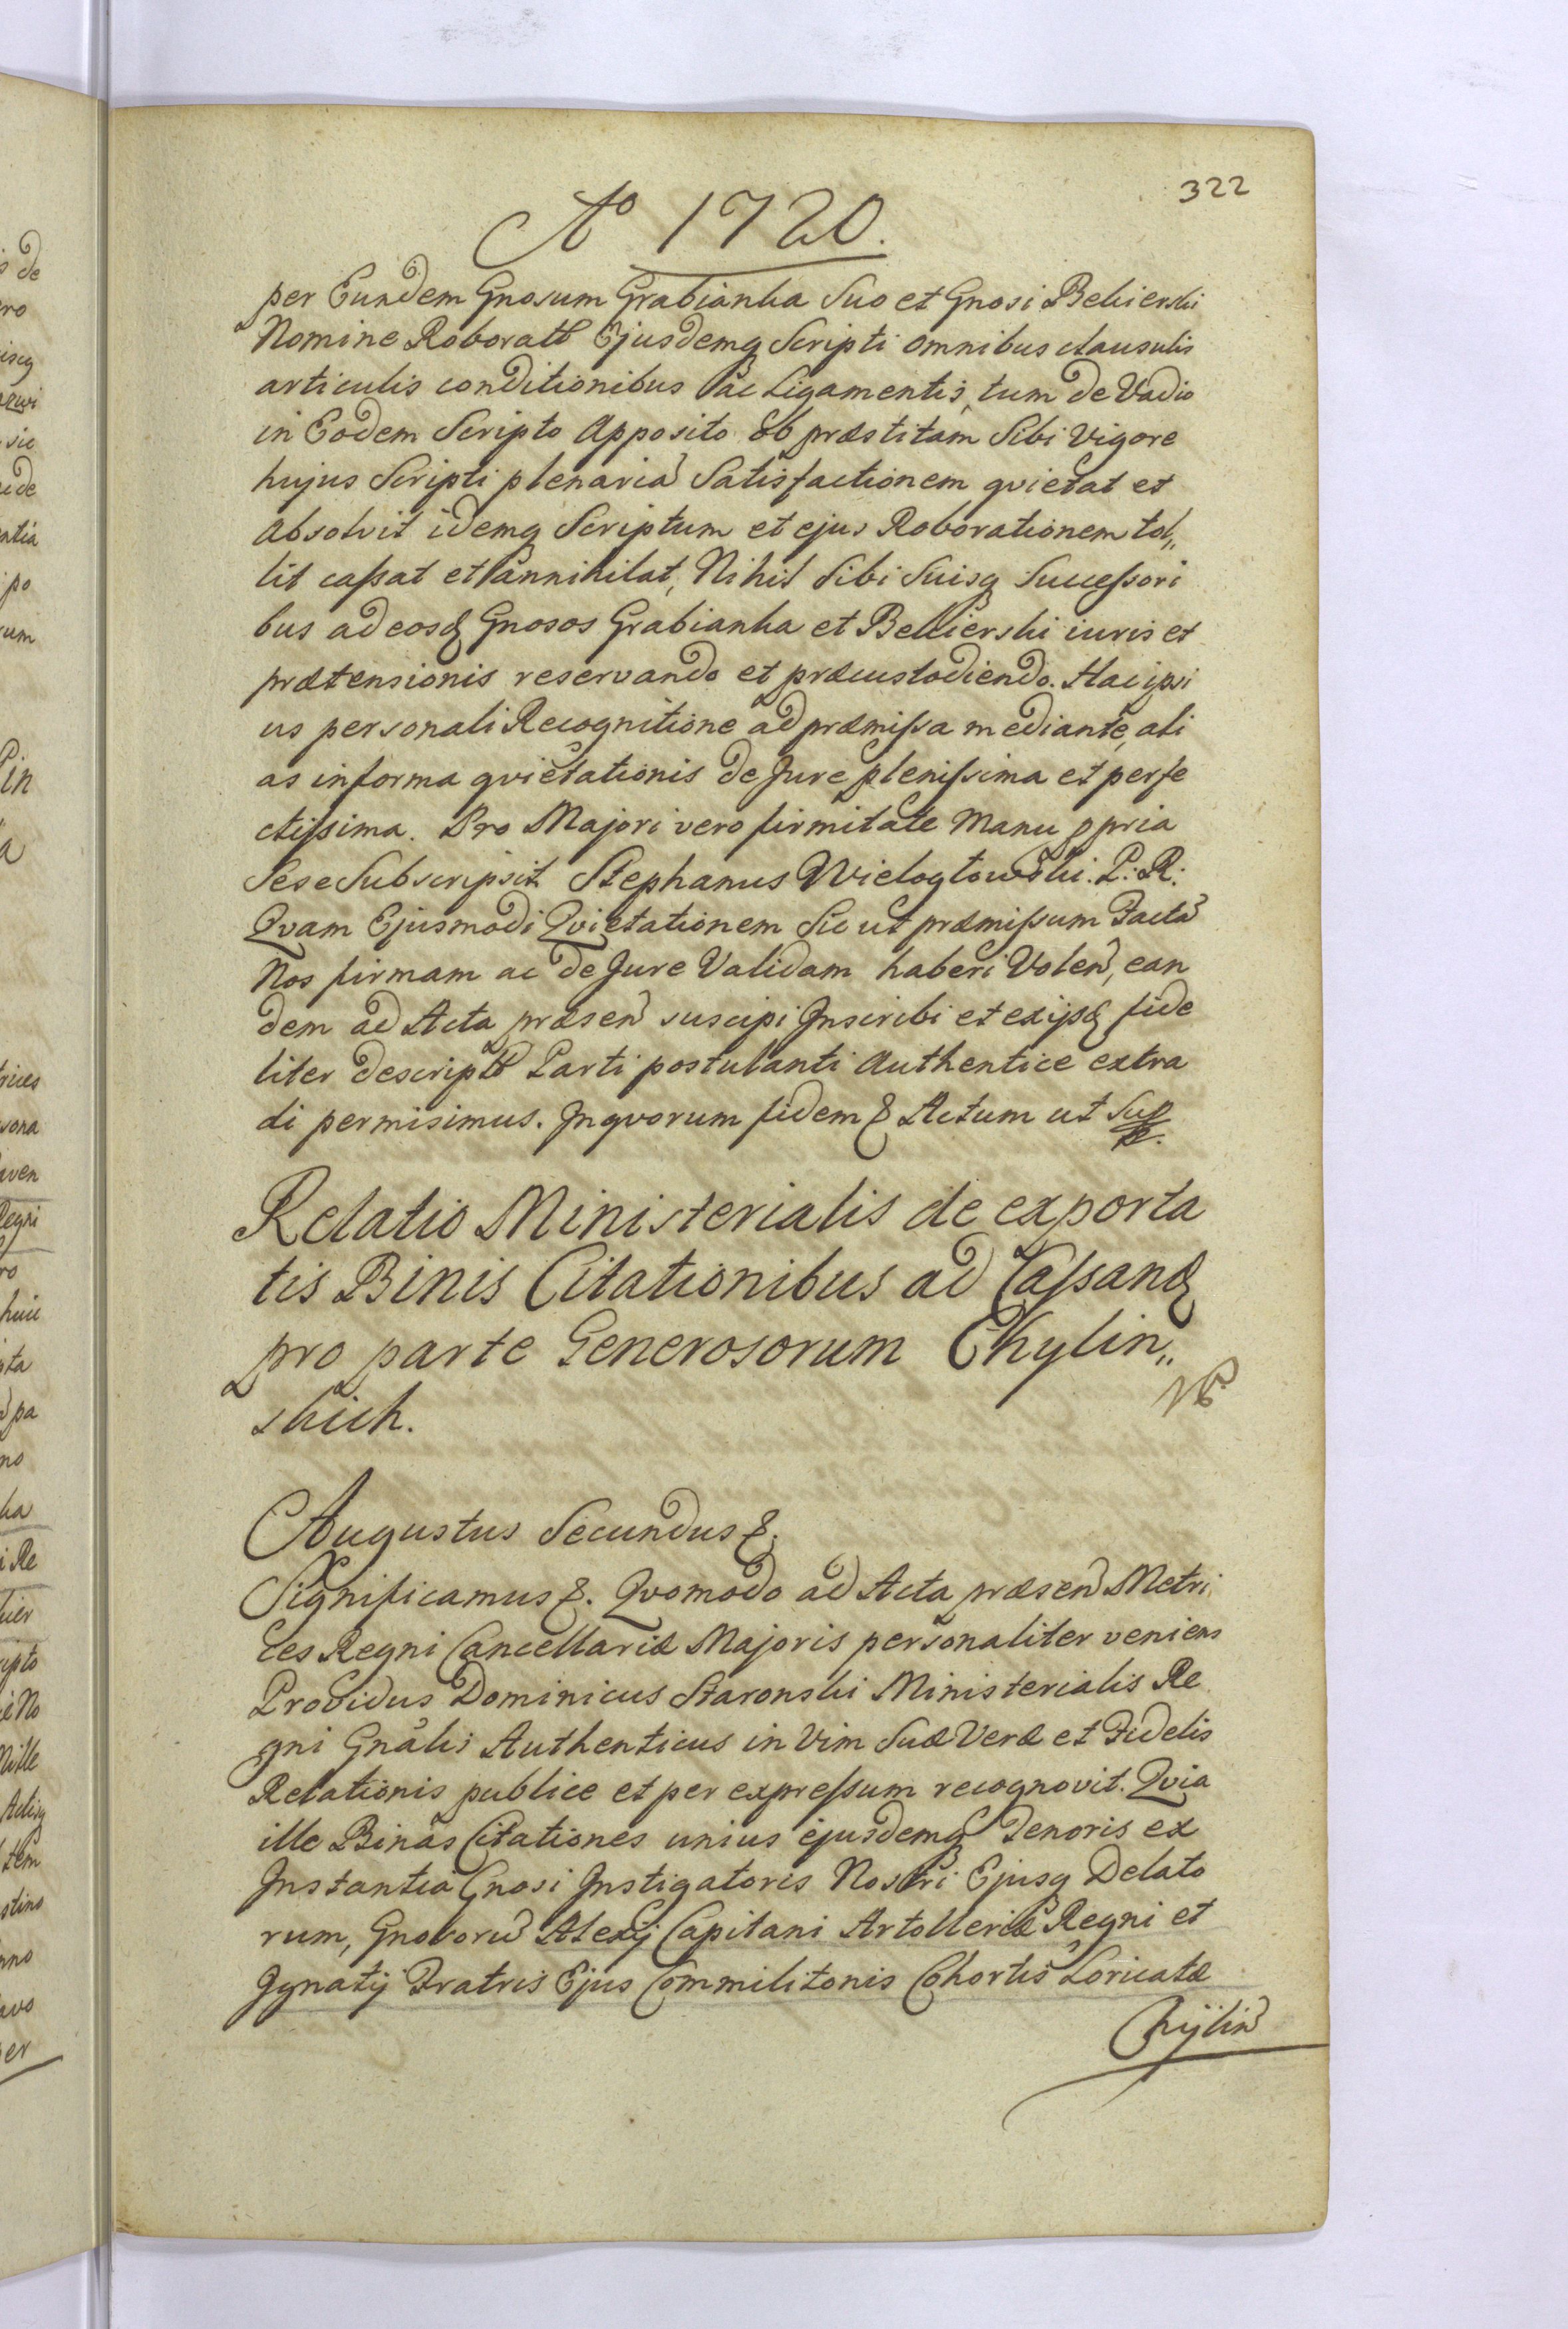 322
Ao 1720.
per Eundem Gnosum Grabianka Suo et Gnosi Bekierski
Nomine Roborat Ejusdemq Scripti omnibus clausulis
articulis conditionibus ac Ligamentis, tum de Vadio
in Eodem Scripto Apposito ob præstitam Sibi Vigore
hujus Scripti plenariã Satisfactionem qvietat et
Absolvit idemq Scriptum et ejus Roborationem tol„
lit caſsat et annihilat, Nihil Sibi Suisq Succeſsori
bus ad eosd Gnosos Grabianka et Bekierski iuris et
prætensionis reservando et præcustodiendo. Hac ipsi
us personali Recognitione ad præmiſsa mediante, ali
as in forma qvietationis de Jure pleniſsima et perfe
ctiſsima. Pro Majori vero firmitate Manu ppria
Sese Subscripsit Stephanus Wielogłowski. P: R:
Qvam Ejusmodi Qvietationem Sic ut præmiſsum Factã
Nos firmam ac de Jure Validam haberi Volen, ean
dem ad Acta præsen suscipi Inscribi et ex ijsd fide
liter descript Parti postulanti Authentice extra
di permisimus. In qvorum fidem & Actum ut Sup
Relatio Ministerialis de exporta
tis Binis Citationibus ad Caſsand
pro parte Generosorum Chylin„
skich.
Augustus Secundus &.
Significamus &. Qvomodo ad Acta præsen Metri
ces Regni Cancellariæ Majoris personaliter veniens
Providus Dominicus Staronski Ministerialis Re
gni Gnalis Authenticus in Vim Suæ Veræ et Fidelis
Relationis publice et per expreſsum recognovit. Qvia
ille Binas Citationes unius ejusdemq Tenoris ex
Instantia Gnosi Instigatoris Nostri Ejusq Delato
rum, Gnosorũ Alexij Capitani Artolleriæ Regni et
Ignatij Fratris Ejus Commilitonis Cohortis Loricatæ
Chÿlin